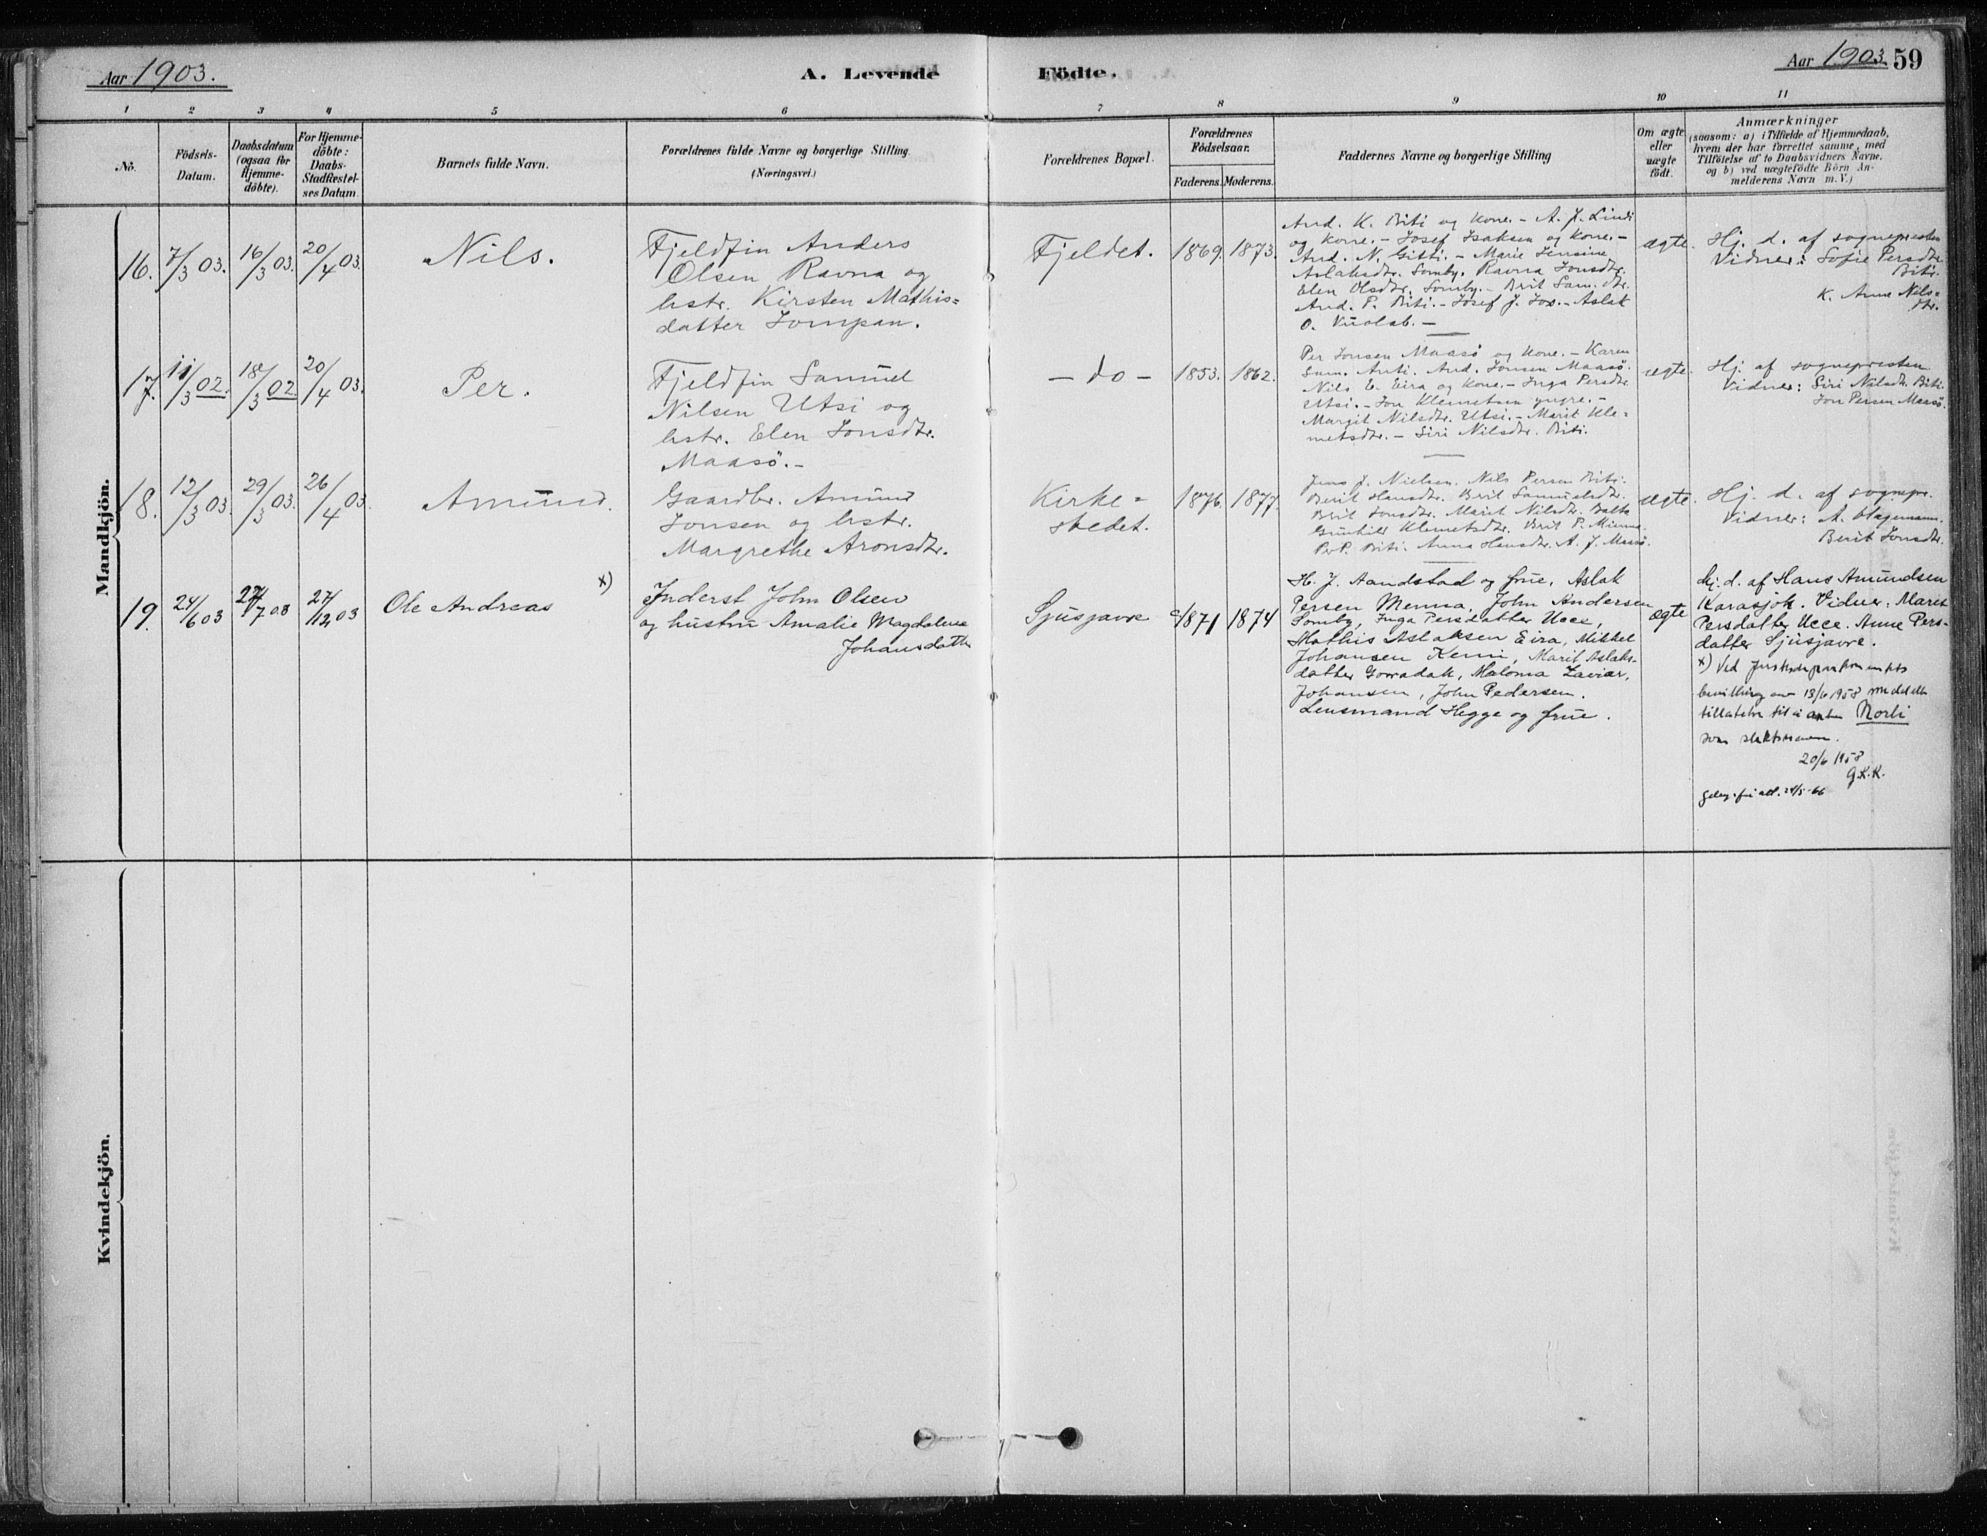 Aar 1903.
A. Levende Födte.
Aar 1903 59
1 2 3 4 5 6 7 8 9 10 11
No.
Födsels-
Datum.
Daabsdatum
(ogsaa for
Hjemme-
döbte).
For Hjemme-
döbte:
Daabs-
Stadfæstel-
ses Datum
Barnets fulde Navn.
Forældrenes fulde Navne og borgerlige Stilling.
(Næringsvei.)
Forældrenes Bopæl.
Forældrenes
Födselsaar.
Faderens. Moderens.
Faddernes Navne og borgerlige Stilling
Om ægte
eller
uægte
födt.
Anmærkninger
(saasom: a) i Tilfælde af Hjemmedaab,
hvem der har forrettet samme, med
Tilföielse af to Daabsvidners Navne.
og b) ved uægtefödte Börn An-
melderens Navn m. V.)
Mandkjön.
16. 7/3 03. 16/3 03. 20/4 03.
Nils.
Fjeldfin Anders
Olsen Ravna og
hstr. Kirsten Mathis=
datter Jompan.
Fjeldet. 1869. 1873.
And. K. Biti og kone. - A. J. Lindi
og kone. - Josef Isaksen og kone. -
And. N. Gitti. - Marie Jensine
Aslaksdtr. Somby. Ravna Jonsdtr.
Elen Olsdtr. Somby. - Brit Sam. dtr.
And. P. Biti. - Josef J. - Aslak
O. Vuolab. -
ægte.
Hj. d. af sognepresten
Vidner: Sofie Persdtr.
Biti.
K. Anne Nils=
dtr.
17. 11/3 02. 18/3 02 20/4 03.
Per.
Fjeldfin Samuel
Nilsen Utsi og
hstr. Elen Jonsdtr.
Maasö. -
- do - 1853. 1862.
Per Jonsen Maasö og kone. - Karen
Sam. Anti. And. Jonsen Maasö.
Nils E. Eira og kone. - Inga Persdtr.
Utsi. - Jon Klemetsen yngre. -
Margit Nilsdtr. Utsi. - Marit Kle=
metsdtr. - Siri Nilsdtr. Biti.
ægte.
Hj. af sognepresten
Vidner: Siri Nilsdtr. Biti.
Jon Persen Maasö.
18. 12/3 03. 29/3 03. 26/4 03.
Amund.
Gaardbr. Amund
Jonsen og hstr.
Margrethe Aronsdtr.
Kirke=
stedet.
1876. 1877.
J. Nielsen. Nils Persen Biti.
Berit Hansdtr. Brit Samuelsdtr.
Brit Jonsdtr. Marit Nilsdtr. Balto
Gunhild Klemetsdtr. Brit P. Mienna.
P. Biti. Anna Hansdtr. A. J. Maasö.
ægte.
Hj. d. af sognepr.
Vidner: A. Hagemann.
Berit Jonsdtr.
19. 24/6 03 27/7 03 27/12 03
Ole Andreas x)
Inderst John Olsen
og hustru Amalie Magdalene
Johansdatter
Sjusjavre 1871 1874
H. J. Aandstad og frue, Aslak
Persen Menna, John Andersen
Somby, Inga Persdatter Ucce,
Mathis Aslaksen Eira, Mikkel
Johansen Kemi, Marit Aslaks-
datter Gorradak, Malona
Johansen, John Pedersen.
Lensmand Hegge og frue.
ægte
Hj. d. af Hans Amundsen
Karasjok. Vidner: Maret
Persdatter Ucce. Anne Pers-
datter Sjusjavre.
x) Ved Justisdepartementets
bevilling av 13/6 1958 meddelt
tillatelse til å anta Norli
som slektsnavn.
20/6 1958
G.K.K.
24/5-66
Kvindekjön.